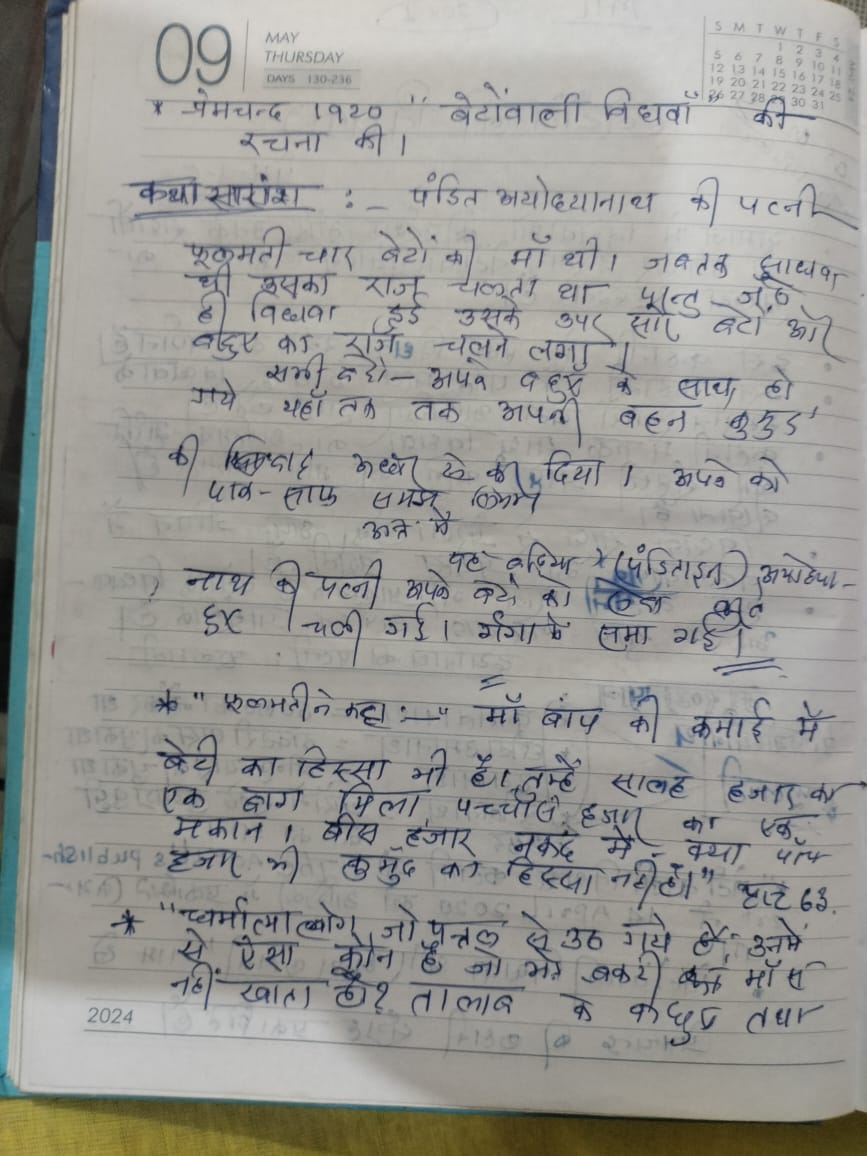 09
MAY
THURSDAY
DAYS 130-236
S M T W T F S
1 2 3 4
5 6 7 8 9 10 11
12 13 14 15 16 17 18
19 20 21 22 23 24 25
26 27 28 29 30 31
* प्रेमचन्द 1920 " बेटोंवाली विधवा" की
रचना की।
कथा सारांश :- पंडित अयोध्यानाथ की पत्नी
फूलमती चार बेटों की माँ थी। जबतक
थी उसका राज चलता था
ही विधवा हुई उसके उपर सारे बेटों और
बहुए का राज चलने लगा।
सभी बेटे - अपने बहुए के साथ हो
गये यहाँ तक तक अपनी बहन कुमुद
की दिया। अपने को
पाक-साफ समझ लिया
अन्त में
यह बुढ़िया (पंडिताइन) अयोध्या-
नाथ की पत्नी अपने बेटों को
हुए चली गई। गंगा में समा गई।
* "फूलमती ने कहा :- "माँ बाप की कमाई में
बेटी का हिस्सा भी है। तुम्हें सोलह हजार का
एक बाग मिला पच्चीस हजार का एक
मकान। बीस हजार नकद में क्या पाँच
हजार भी कुमुद का हिस्सा नहीं है।" 63.
* "धर्मात्मा लोग जो पत्तल से उठ गये हैं; उनमें
से ऐसा कौन है जो भेड़ बकरी का माँस
नहीं खाता हो? तालाब के कछुए तथा
2024